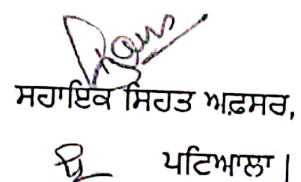 ਸਹਾਇਕ ਸਿਹਤ ਅਫ਼ਸਰ,
ਪਟਿਆਲਾ।